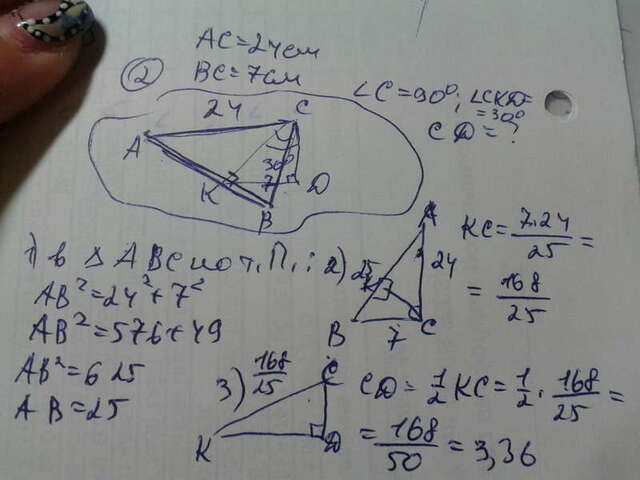 AC=24см
② BC=7см
∠C=90°; ∠CKD=
=30°
CD=?
24 C
A
30°
K 7 D
B
1) в △ABC по т.П.:
AB²=24²+7²
AB²=576+49
AB²=625
AB=25
2) A
25 24
B 7 C
KC=7·24/25=
=168/25
3) 168/25 C
K D
CD=1/2KC=1/2·168/25=
=168/50=3,36